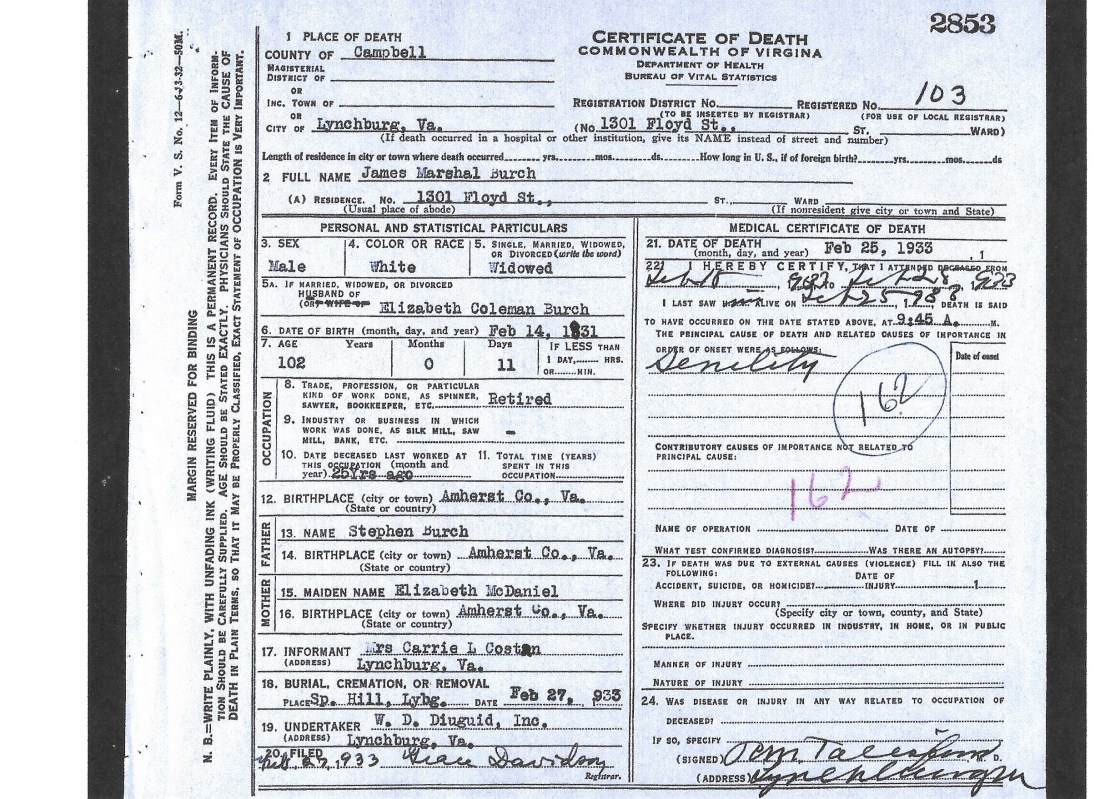 2853
Form V. S. No. 12—6-13-32—50M.
MARGIN RESERVED FOR BINDING
N. B.—WRITE PLAINLY, WITH UNFADING INK (WRITING FLUID) THIS IS A PERMANENT RECORD. EVERY ITEM OF INFORM-
TION SHOULD BE CAREFULLY SUPPLIED. AGE SHOULD BE STATED EXACTLY. PHYSICIANS SHOULD STATE THE CAUSE OF
DEATH IN PLAIN TERMS, SO THAT IT MAY BE PROPERLY CLASSIFIED, EXACT STATEMENT OF OCCUPATION IS VERY IMPORTANT.
1 PLACE OF DEATH
COUNTY OF Campbell
MAGISTERIAL
DISTRICT OF
OR
INC. TOWN OF
OR
CITY OF Lynchburg, Va.
CERTIFICATE OF DEATH
COMMONWEALTH OF VIRGINA
DEPARTMENT OF HEALTH
BUREAU OF VITAL STATISTICS
REGISTRATION DISTRICT NO. REGISTERED NO. 103
(TO BE INSERTED BY REGISTRAR) (FOR USE OF LOCAL REGISTRAR)
(No. 1301 Floyd St., ST. WARD)
(If death occurred in a hospital or other institution, give its NAME instead of street and number)
Length of residence in city or town where death occurred yrs. mos. ds. How long in U. S., if of foreign birth? yrs. mos. ds
2 FULL NAME James Marshal Burch
(A) RESIDENCE. NO. 1301 Floyd St., ST. WARD
(Usual place of abode) (If nonresident give city or town and State)
PERSONAL AND STATISTICAL PARTICULARS
3. SEX 4. COLOR OR RACE 5. SINGLE, MARRIED, WIDOWED,
OR DIVORCED (write the word)
Male White Widowed
5A. IF MARRIED, WIDOWED, OR DIVORCED
HUSBAND OF
(OR WIFE OF Elizabeth Coleman Burch
6. DATE OF BIRTH (month, day, and year) Feb 14, 1831
7. AGE Years Months Days IF LESS THAN
102 0 11 1 DAY, HRS.
OR MIN.
OCCUPATION
8. TRADE, PROFESSION, OR PARTICULAR
KIND OF WORK DONE, AS SPINNER,
SAWYER, BOOKKEEPER, ETC. Retired
9. INDUSTRY OR BUSINESS IN WHICH
WORK WAS DONE, AS SILK MILL, SAW
MILL, BANK, ETC. -
10. DATE DECEASED LAST WORKED AT 11. TOTAL TIME (YEARS)
THIS OCCUPATION (month and SPENT IN THIS
year) 25Yrs ago OCCUPATION
12. BIRTHPLACE (city or town) Amherst Co., Va.
(State or country)
FATHER
13. NAME Stephen Burch
14. BIRTHPLACE (city or town) Amherst Co., Va.
(State or country)
MOTHER
15. MAIDEN NAME Elizabeth McDaniel
16. BIRTHPLACE (city or town) Amherst Co., Va.
(State or country)
17. INFORMANT Mrs Carrie L Costan
(ADDRESS) Lynchburg, Va.
18. BURIAL, CREMATION, OR REMOVAL
PLACE Sp. Hill, Lybg. DATE Feb 27, 1933
19. UNDERTAKER W. D. Diuguid, Inc.
(ADDRESS) Lynchburg, Va.
20. FILED
Feb. 27, 1933 Grace Davidson
Registrar.
MEDICAL CERTIFICATE OF DEATH
21. DATE OF DEATH
(month, day, and year) Feb 25, 1933 , 1
22. I HEREBY CERTIFY, THAT I ATTENDED DECEASED FROM
TO
I LAST SAW ALIVE ON Feb 25 , DEATH IS SAID
TO HAVE OCCURRED ON THE DATE STATED ABOVE, AT 9:45 A. M.
THE PRINCIPAL CAUSE OF DEATH AND RELATED CAUSES OF IMPORTANCE IN
ORDER OF ONSET WERE AS FOLLOWS: Date of onset
Senility
162
CONTRIBUTORY CAUSES OF IMPORTANCE NOT RELATED TO
PRINCIPAL CAUSE:
162
NAME OF OPERATION DATE OF
WHAT TEST CONFIRMED DIAGNOSIS? WAS THERE AN AUTOPSY?
23. IF DEATH WAS DUE TO EXTERNAL CAUSES (VIOLENCE) FILL IN ALSO THE
FOLLOWING: DATE OF
ACCIDENT, SUICIDE, OR HOMICIDE? INJURY 1
WHERE DID INJURY OCCUR?
(Specify city or town, county, and State)
SPECIFY WHETHER INJURY OCCURRED IN INDUSTRY, IN HOME, OR IN PUBLIC
PLACE.
MANNER OF INJURY
NATURE OF INJURY
24. WAS DISEASE OR INJURY IN ANY WAY RELATED TO OCCUPATION OF
DECEASED?
IF SO, SPECIFY
(SIGNED) M. D.
(ADDRESS) Lynchburg